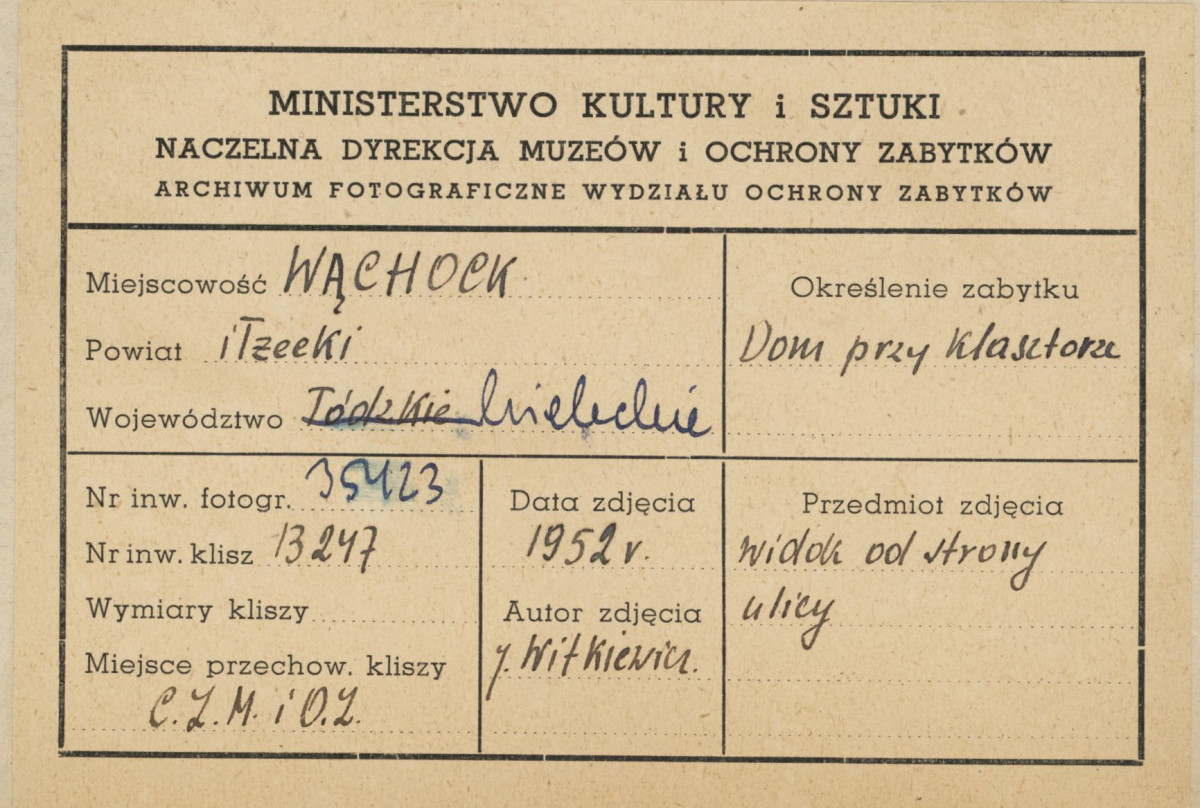 MINISTERSTWO KULTURY i SZTUKI
NACZELNA DYREKCJA MUZEÓW i OCHRONY ZABYTKÓW
ARCHIWUM FOTOGRAFICZNE WYDZIAŁU OCHRONY ZABYTKÓW
Miejscowość WĄCHOCK
Powiat iłżecki
Województwo Łódzkie kieleckie
Określenie zabytku
Dom przy klasztorze
Nr inw. fotogr. 35423
Nr inw. klisz 13247
Wymiary kliszy
Miejsce przechow. kliszy
C.Z.M. i O.Z.
Data zdjęcia
1952 r.
Autor zdjęcia
J. Witkiewicz.
Przedmiot zdjęcia
widok od strony
ulicy